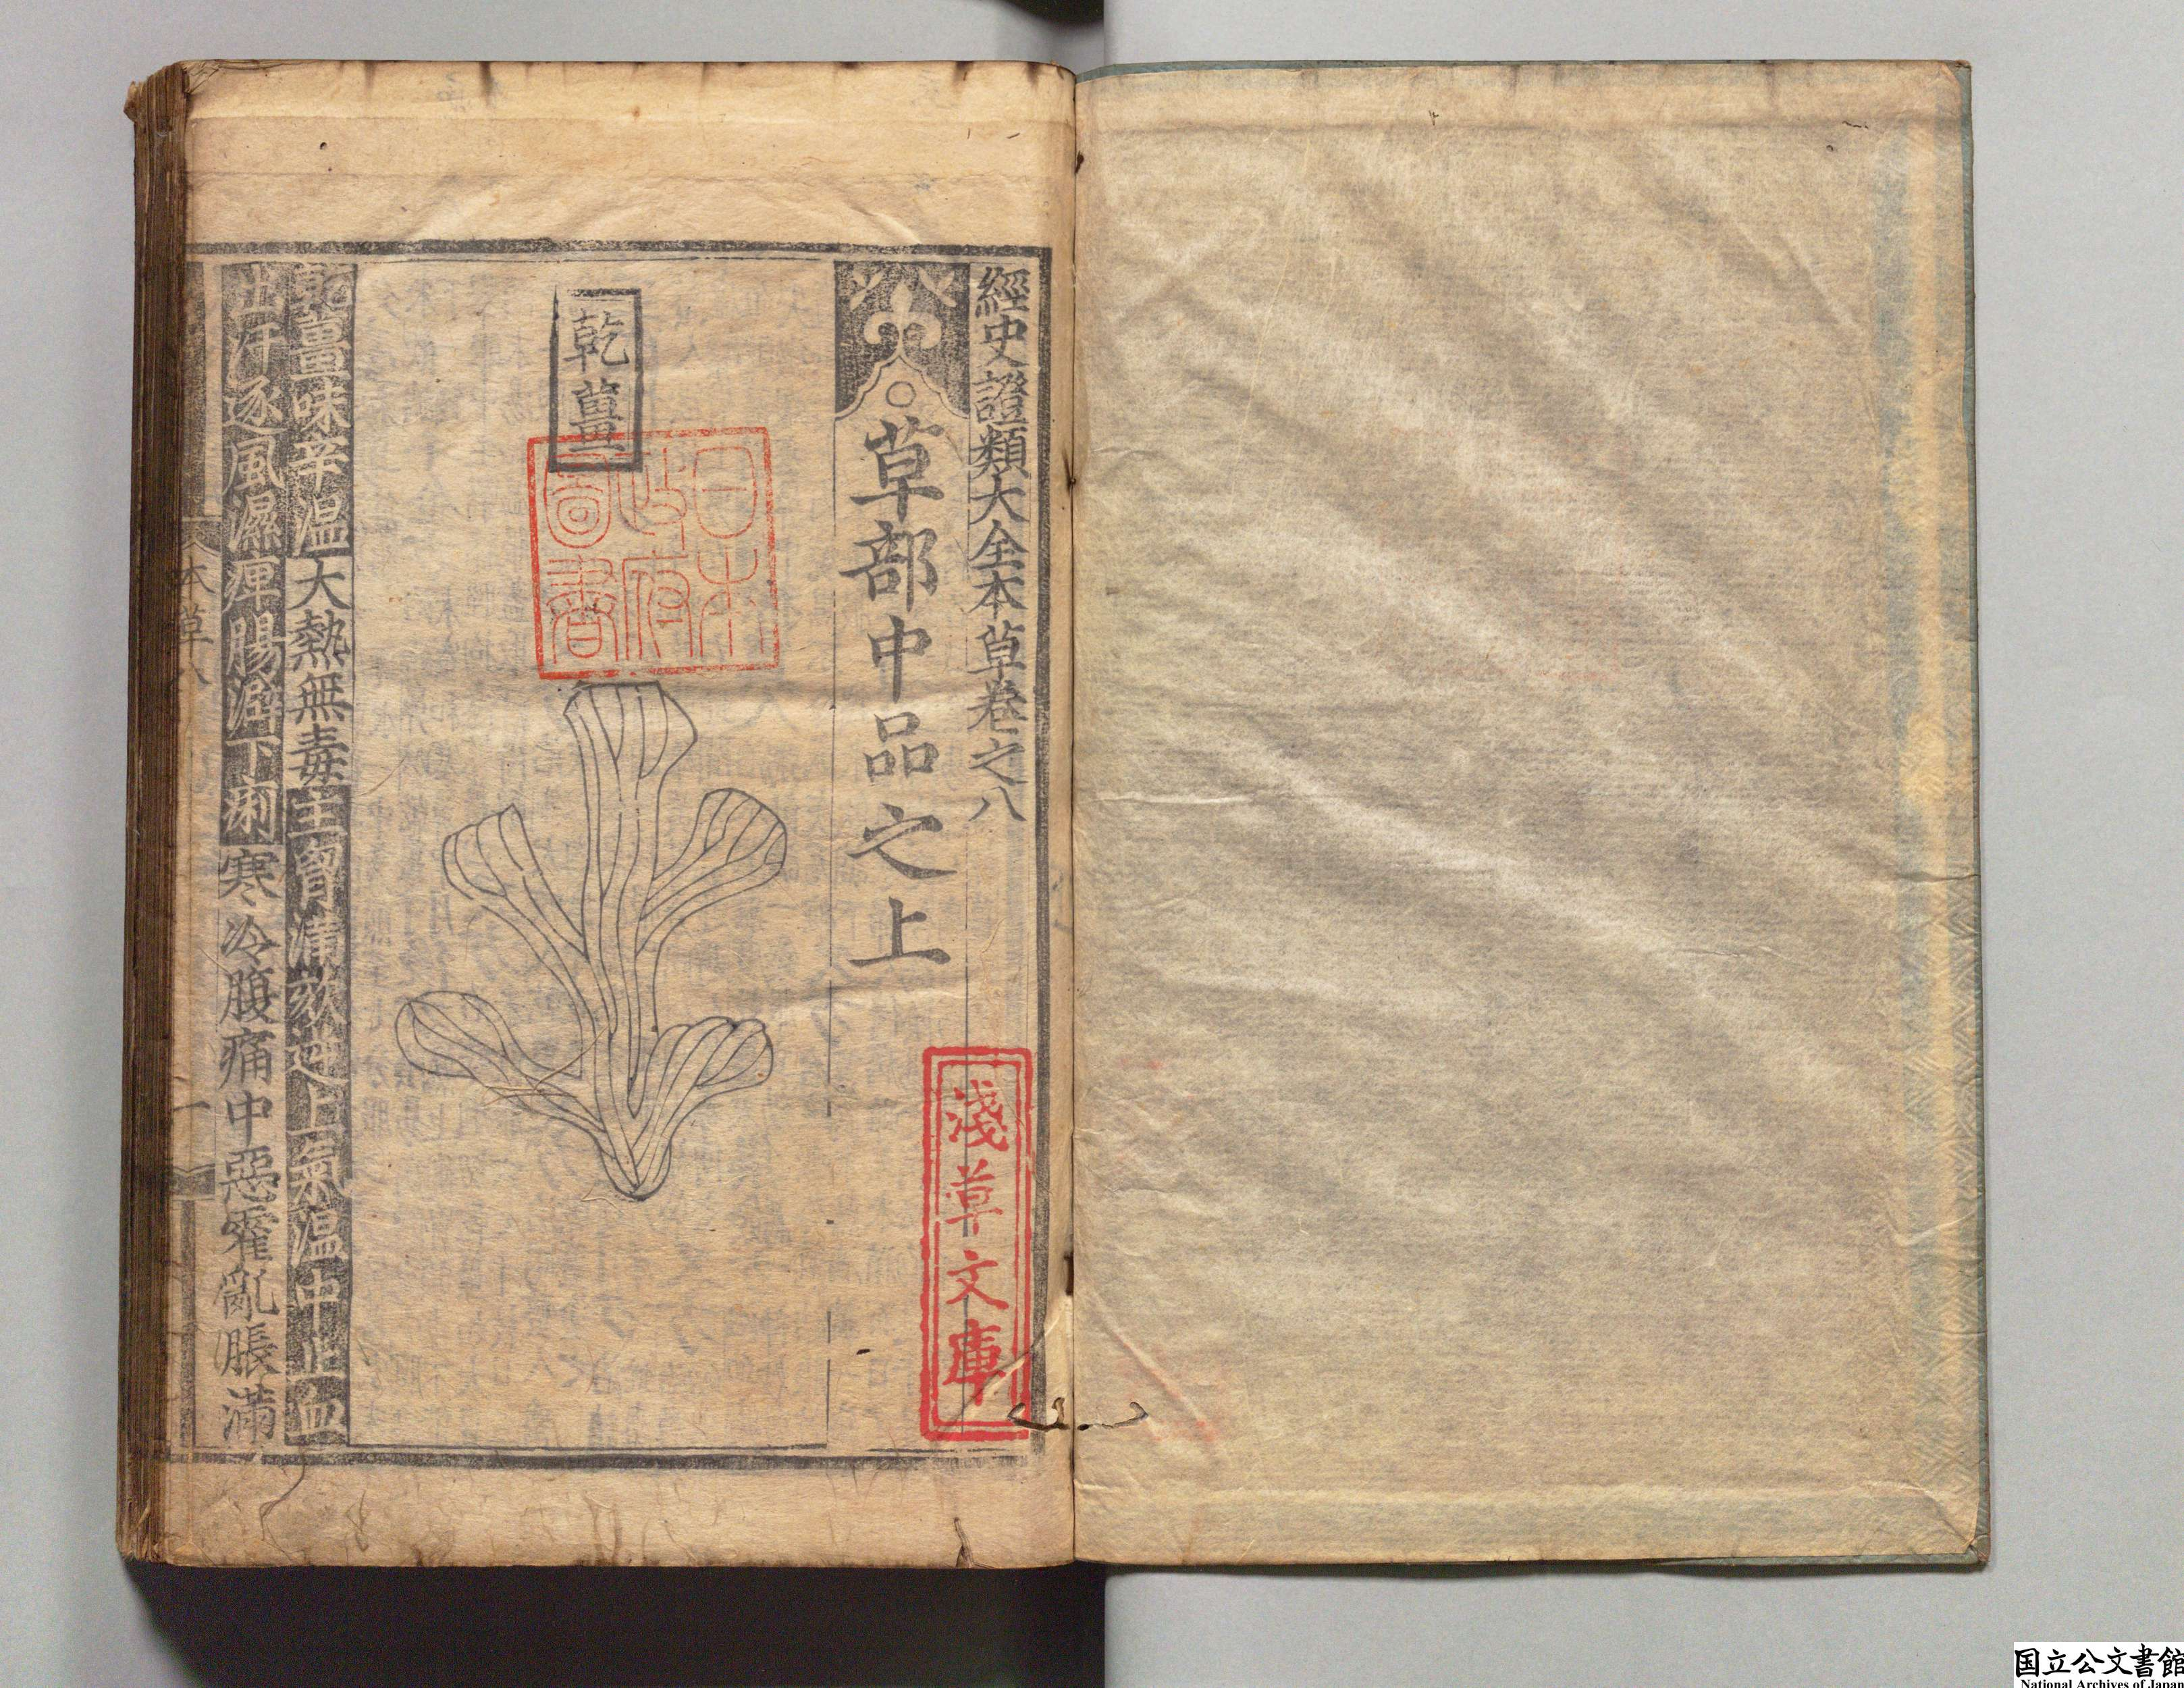 經史證類大全本草卷之八
○草部中品之上
乾薑
乾薑味辛温大熱無毒主胷滿欬逆上氣温中止血
出汗逐風濕痺腸澼下痢寒冷腹痛中惡霍亂脹滿
本草八
一
日本
政府
圖書
淺草文庫
国立公文書館
National Archives of Japan